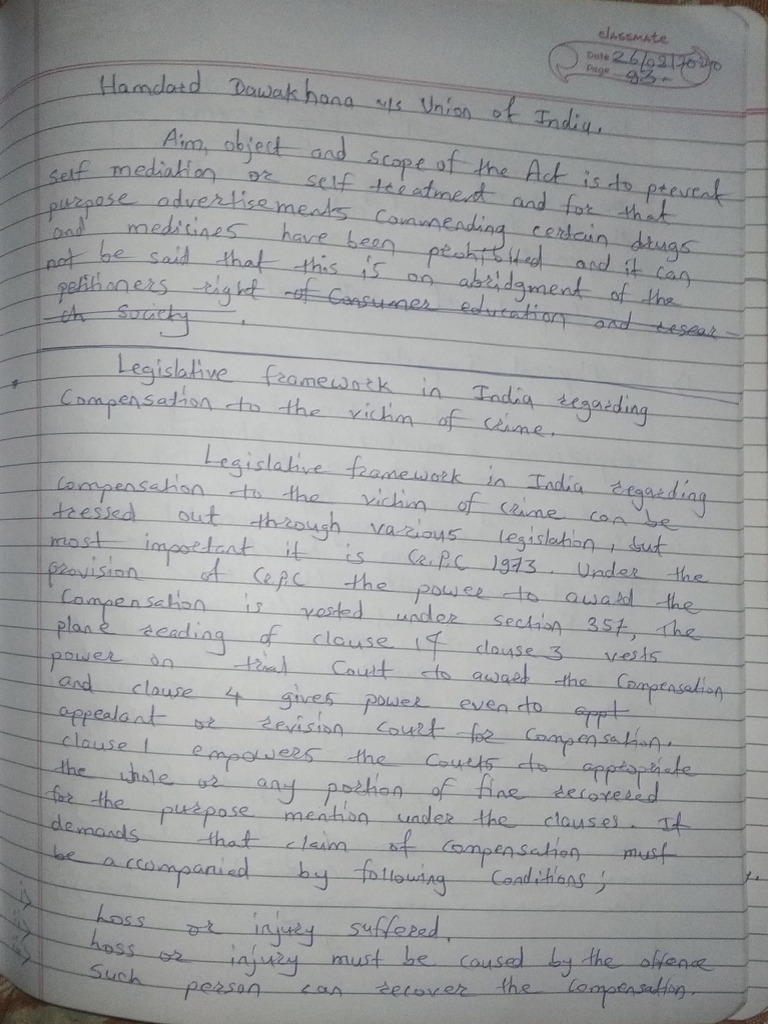 classmate
Date
Page 93
Hamdard Dawakhana v/s Union of India.
Aim, object and scope of the Act is to prevent
self mediation or self treatment and for that
purpose advertisements commending certain drugs
and medicines have been prohibited and it can
not be said that this is on abridgment of the
petitioners right of Consumer education and resear-
ch Society.
Legislative framework in India regarding
Compensation to the victim of crime.
Legislative framework in India regarding
Compensation to the victim of crime can be
tressed out through various legislation, but
most important it is Cr.P.C 1973. Under the
provision of Cr.P.C the power to award the
Compensation is vested under section 357, The
plane reading of clause 1 clause 3 vests
power on trial Court to award the Compensation
and clause 4 gives power even to appt
appealant or revision Court for Compensation.
clause 1 empowers the Courts to appropriate
the whole or any portion of fine recovered
for the purpose mention under the clauses. It
demands that claim of compensation must
be accompanied by following Conditions;
Loss or injury suffered.
Loss or injury must be caused by the offence
Such person can recover the Compensation.